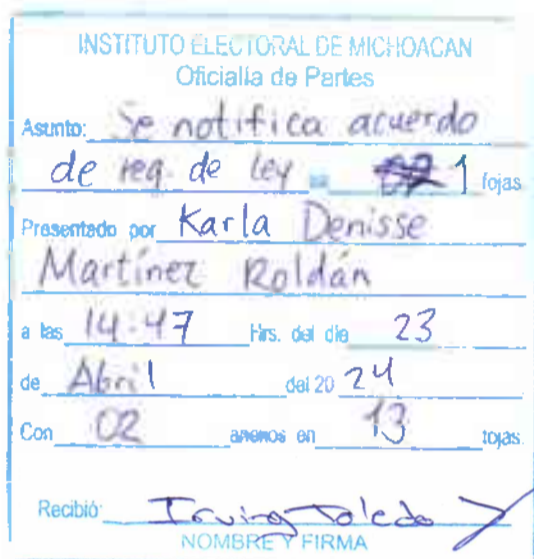 INSTITUTO ELECTORAL DE MICHOACAN
Oficialía de Partes
Asunto: Se notifica acuerdo
de req. de ley en 1 fojas
Presentado por Karla Denisse
Martínez Roldán
a las 14:47 Hrs. del día 23
de Abril del 20 24
Con 02 anexos en 13 fojas.
Recibió: Irving Toledo
NOMBRE Y FIRMA